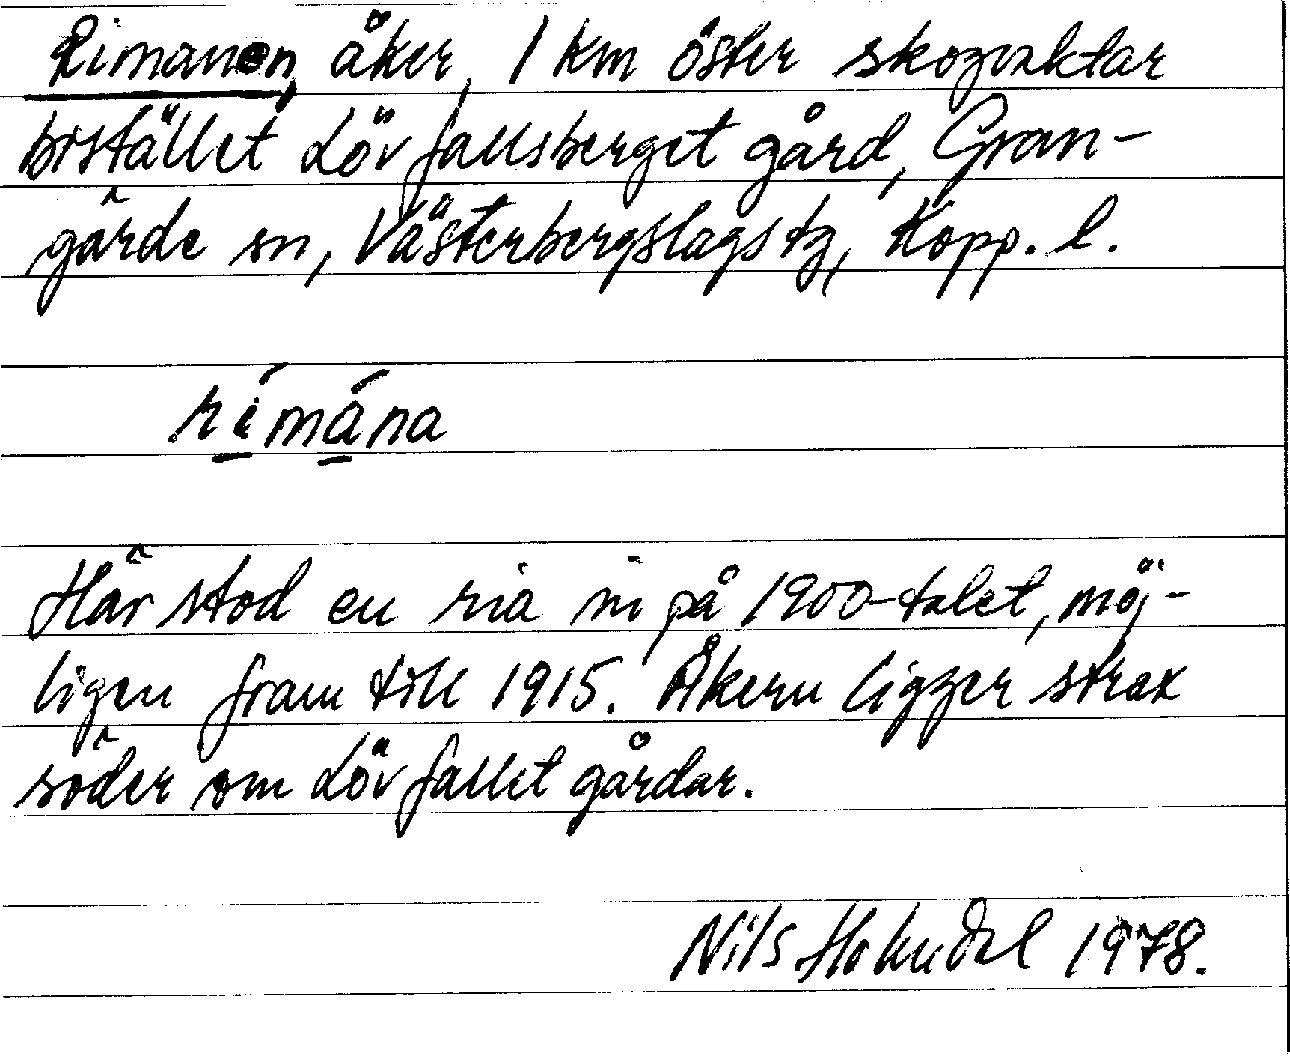 Rimanen, åker, 1 km öster skogvaktar
bostället Lövfallsberget gård, Gran-
gärde sn, Västerbergslags tg, Kopp. l.
rímána
Här stod en ria in på 1900-talet, möj-
ligen fram till 1915. Åkern ligger strax
söder om Lövfallet gårdar.
Nils 1978.